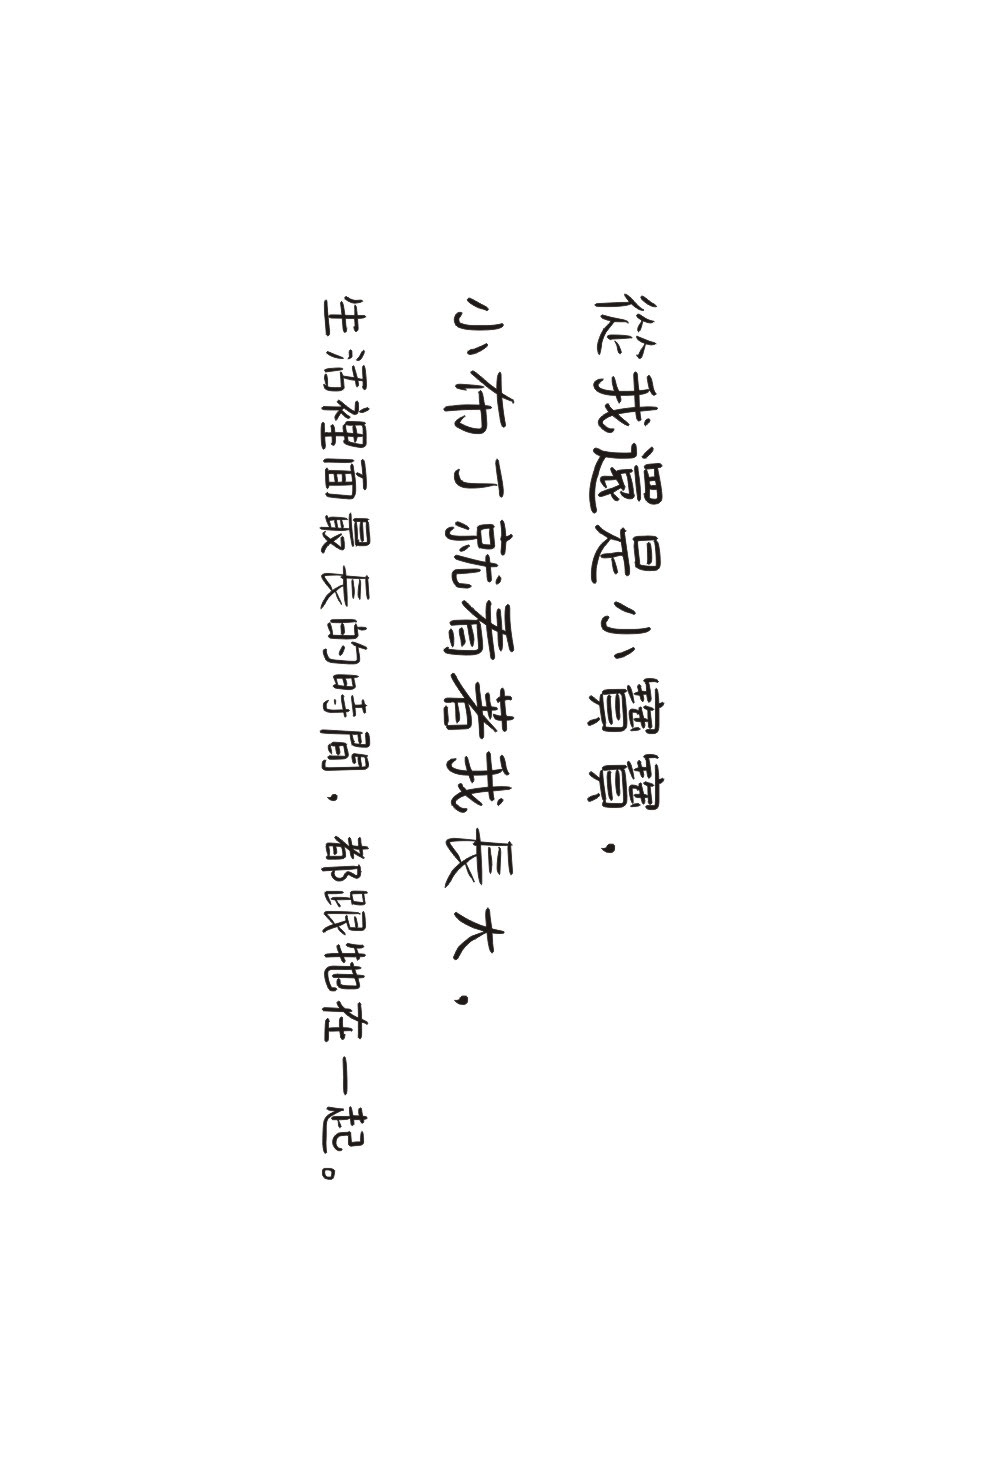 從我還是小寶寶，
小布丁就看著我長大，
生活裡面最長的時間，都跟牠在一起。